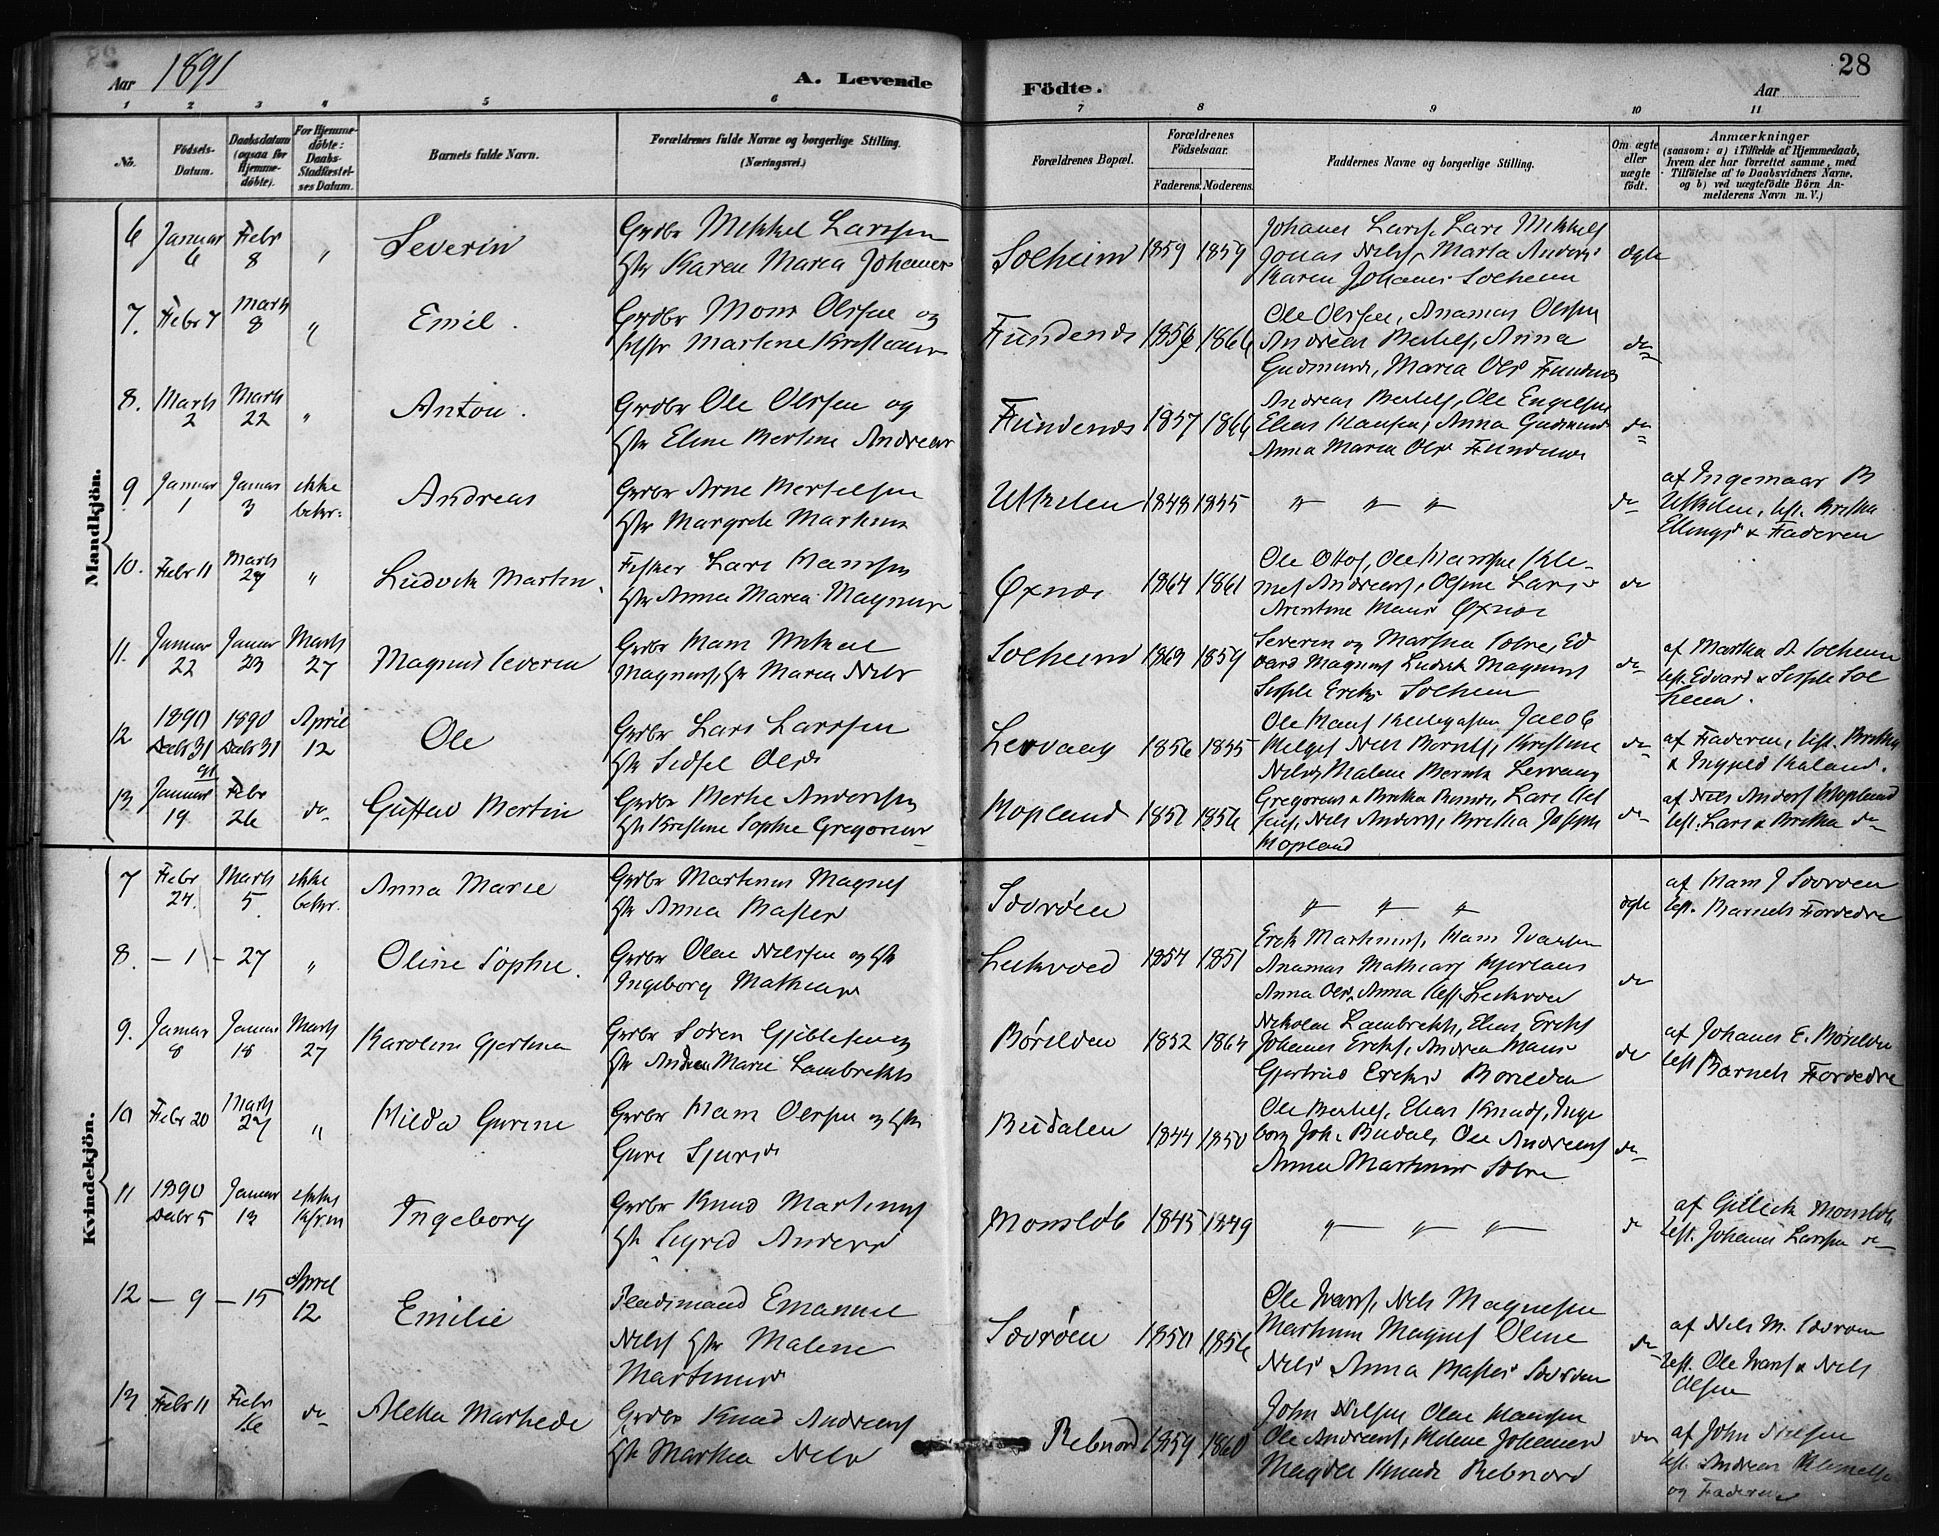 28
Aar 1891
A. Levende
Födte.
Aar
1 2 3 4 5 6 7 8 9 10 11
No.
Födsels-Datum.
Daabsdatum (ogsaa for Hjemme-döbte).
For Hjemme-döbte: Daabs-Stadfæstel-ses Datum.
Barnets fulde Navn.
Forældrenes fulde Navne og borgerlige Stilling.
(Næringsvei.)
Forældrenes Bopæl.
Forældrenes Födselsaar.
Faderens. Moderens.
Faddernes Navne og borgerlige Stilling.
Om ægte eller uægte födt.
Anmærkninger
(saasom: a) i Tilfælde af Hjemmedaab, hvem der har forrettet samme, med Tilföielse af to Daabsvidners Navne, og b) ved uægtefödte Börn Anmelderens Navn m. V.)
Mandkjön.
6 Januar 6 Febr 8 " Severin
Grdbr Mikkel Larssen
Hstr Karen Maria Johanes
Solheim 1859 1859
Johanes Lars, Lars Mikkels
Jonas Nels, Marta Anders
Karen Johanes Solheim
ægte
7. Febr 7 Marts 8 " Emil.
Grdbr Mons Olssen og
Martine Kristians
Fundenæs 1856 1866
Ole Olssen, Ananias Olssen
Andreas Bertels, Anna
Gudmunds, Maria Ols Fundenes
do
8. Marts 2 Marts 22 " Anton.
Grdbr Ole Olssen og
Hstr Eline Bertine Andreas
Fundenæs 1857 1866
Andreas Bertels, Ole Engelsen
Elias Hansen, Anna Gudmund
Anna Maria Ols Fundenes
do
9 Januar 1 Januar 3 ikke bekr: Andreas
Grdbr Arne Bertelsen
Hstr Margrete Martinus
Utkilen 1848 1855
" " "
do
af Ingemaar B
Utkilen, test. Britha
Ellings & Faderen
10. Febr 11 Marts 27 " Ludvik Martin.
Fisker Lars Hanssen
Hstr Anna Maria Magnus
Øxnæs 1864 1861
Ole Ottos, Ole Hanssen Kle-
met Andreas, Olsine Lars
Arentine Hans Øxnæs
do
11. Januar 22 Januar 23 Marts 27 Magnus Severin
Grdbr Hans Mikal
Magnus, Hstr Maria Nels
Solheim 1863 1859
Severin og Martha Sæbre, Ed
vard Magnus Ludvik Magnus
Eriks Solheim
do
af Martha A Solheim
test. Edvard &
heim.
12 1890 Decbr 31 1890 Decbr 31 April 12 Ole
Grdbr Lars Larssen
Hstr Sidsel Ols
Lervaag 1856 1855
Ole Hans Jacob
Helges Nels Bernts, Kristine
Nels, Malene Bernts Lervaag
do
af Faderen, test. Britha
& Kaland.
13 91 Januar 19 Febr 26 do Gustav Mertin
Grdbr Anderssen
Hstr Kristine Sophie Gregorius
Hopland 1851 1856
Gregorius & Britha Lars
Nils Anders, Britha Joseph
Hopland
do
af Nils Anders Hopland
test. Lars & Britha do
Kvindekjön.
7 Febr 24. Marts 5. ikke bekr. Anna Marie
Grdbr Martinus Magnes
Hstr Anna
Sævrøen
" " "
ægte
af Hans J Sævrøen
test. Barnets Forældre
8. — 1 — 27 " Oline Sophie.
Grdbr Olai Nelssen og Hstr
Ingeborg Mathias
1854 1851
Erik Martinus, Hans Ivarsen
Ananias Mathias
Anna Ols, Anna
do
9. Januar 8 Januar 18 Marts 27 Karoline Gjertine
Grdbr Sören
Hstr Andrea Marie Lambrekts
Børilden 1852 1864
Nikolai Lambrekts, Elias Eriks
Johanes Eriks, Andrea Hans
Gjertrud Eriks Børilden
do
af Johanes E. Børilden
test Barnets Forældre
10 Febr 20 Marts 27 " Hilda Gurine
Grdbr Hans Olssen og Hstr
Guri Sjurs
Budalen 1844 1850
Ole Bertels, Elias Knuds, Inge
borg Joh. Budal, Ole Andreas
Anna Martinus Sæbre
do
11 1890 Decbr 5 Januar 13 Ingeborg
Grdbr Knud Martinus
Hstr Sigrid Anders
Monsløb 1845 1849
" " "
do
af Monsløb
test. Johanes Larssen do
12 — 9 — 15 April 12 Emilie
Ferdinand Emanuel
Nels Hstr Malene
Martinus
Sævrøen 1850 1856
Ole Ivars, Nels Magnesen
Martinus Magnes Oline
Nels Anna Sævrøen
do
af Nels M. Sævrøen
test. Ole Ivars & Nels
Olsen
13 Febr 11 Febr 16 do Aletta Mathede
Grdbr Knud Andreas
Hstr Martha Nels
Rebnord 1859 1860
John Nelsen Olai Hansen
Ole Andreas, Helene Johanes
Magda Knuds Rebnord
do
af John Nielsen
test. Andreas Klemets
og Faderen